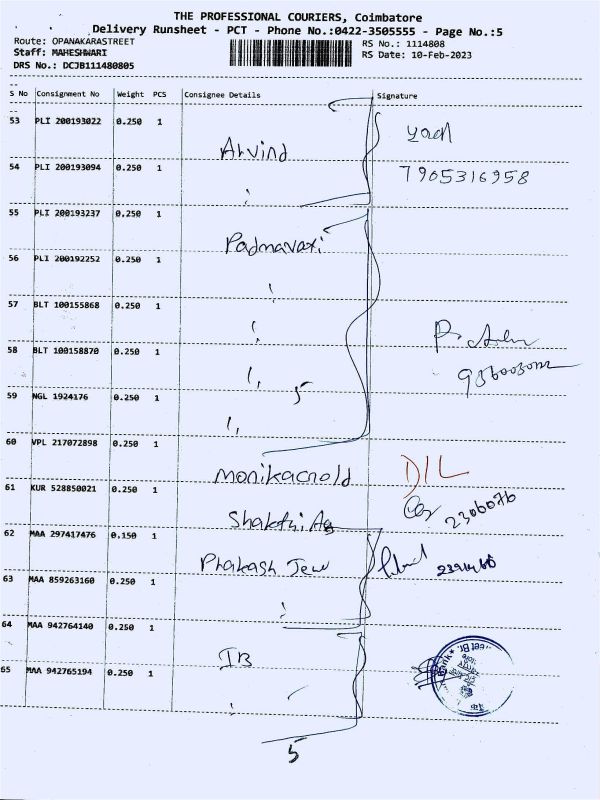 THE PROFESSIONAL COURIERS, Coimbatore
Delivery Runsheet - PCT - Phone No.:0422-3505555 - Page No.:5
Route: OPANAKARASTREET RS No.: 1114808
Staff: MAHESHWARI RS Date: 10-Feb-2023
DRS No.: DCJB111480805
S No Consignment No Weight PCS Consignee Details Signature
53 PLI 200193022 0.250 1
Arvind
54 PLI 200193094 0.250 1 7905316958
55 PLI 200193237 0.250 1
Padmavati
56 PLI 200192252 0.250 1
57 BLT 100155868 0.250 1
58 BLT 100158870 0.250 1
5
59 NGL 1924176 0.250 1
60 VPL 217072898 0.250 1
Monikacnold DIL
61 KUR 528850021 0.250 1
Shakthi Ag 2306076
62 MAA 297417476 0.150 1
Phakash Jew
63 MAA 859263160 0.250 1
64 MAA 942764140 0.250 1
IB
65 MAA 942765194 0.250 1
5